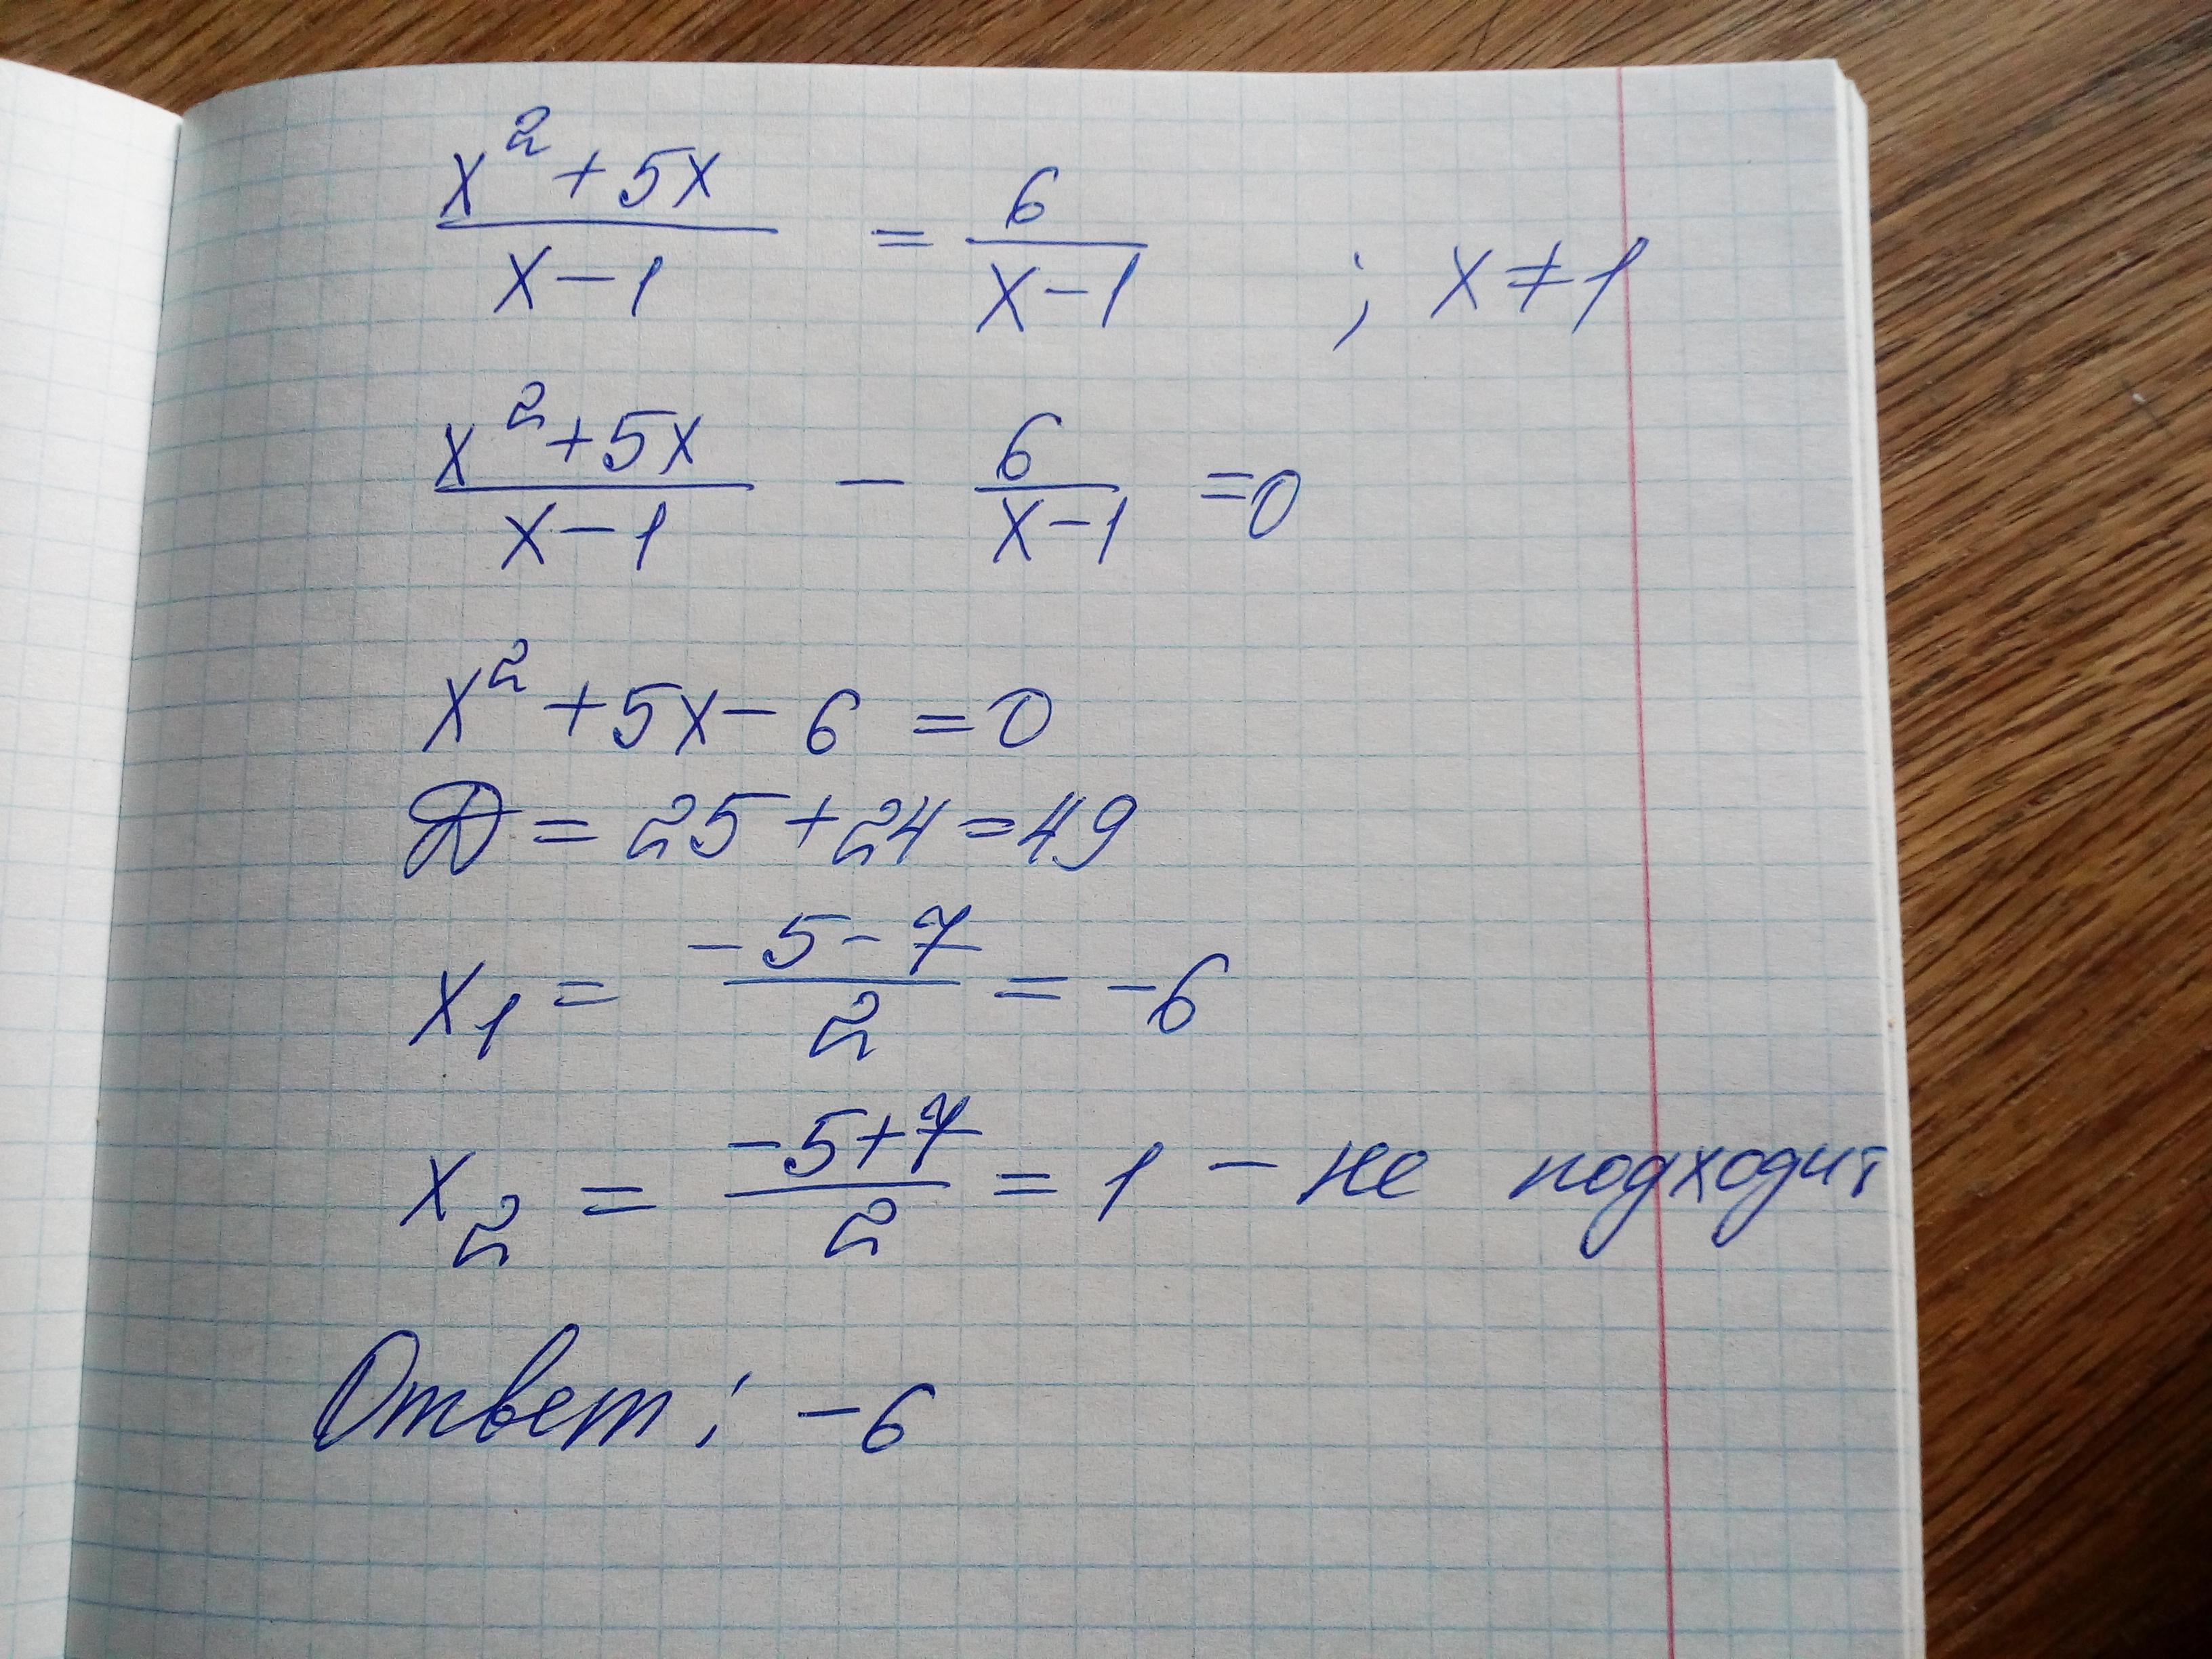 x² + 5x / x - 1 = 6 / x - 1 ; x ≠ 1
x² + 5x / x - 1 - 6 / x - 1 = 0
x² + 5x - 6 = 0
Д = 25 + 24 = 49
x₁ = -5 - 7 / 2 = -6
x₂ = -5 + 7 / 2 = 1 - не подходит
Ответ: -6